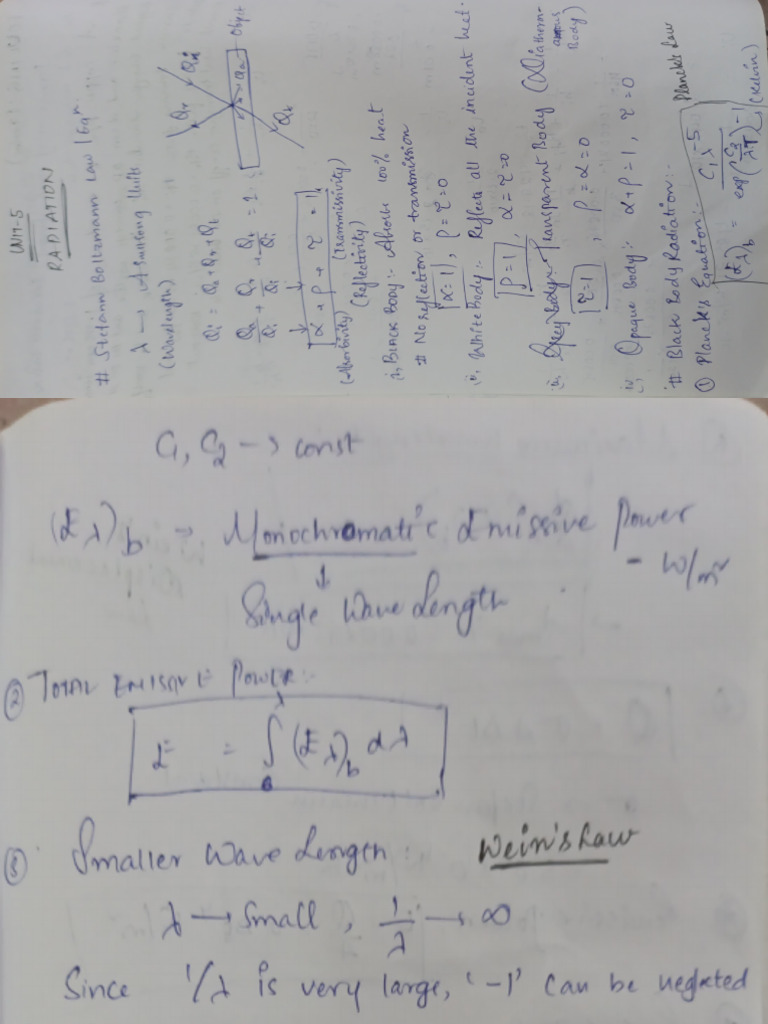 UNIT-5
RADIATION
# Stefann Boltzmann Law / Eqn.
λ → Armstrong Units
(Wavelength)
Qi = Qa + Qr + Qt
Qa/Qi + Qr/Qi + Qt/Qi = 1
Qr
Qt
Object
α + ρ + τ = 1
(Absorbtivity) (Reflectivity) (Transmissivity)
i, Black Body:- Absorb 100% heat
# No reflection or transmission
α = 1, ρ = τ = 0
ii, White body:- Reflects all the incident heat.
ρ = 1, α = τ = 0
iii, Transparent Body
τ = 1, ρ = α = 0
iv, Opaque Body:- α + ρ = 1, τ = 0
# Black Body Radiation:-
① Planck's Equation:- Planck's Law
(Eλ)b = C1 λ^-5 / exp(C2/λT) - 1
(Kelvin)
C1, C2 → const
(Eλ)b → Monochromatic Emissive Power
- W/m²
↓
Single Wave Length
② TOTAL EMISSIVE POWER:-
E = ∫ (Eλ)b dλ
③ Smaller Wave Length: Wein's Law
λ → Small, 1/λ → ∞
Since 1/λ is very large, '-1' can be neglected